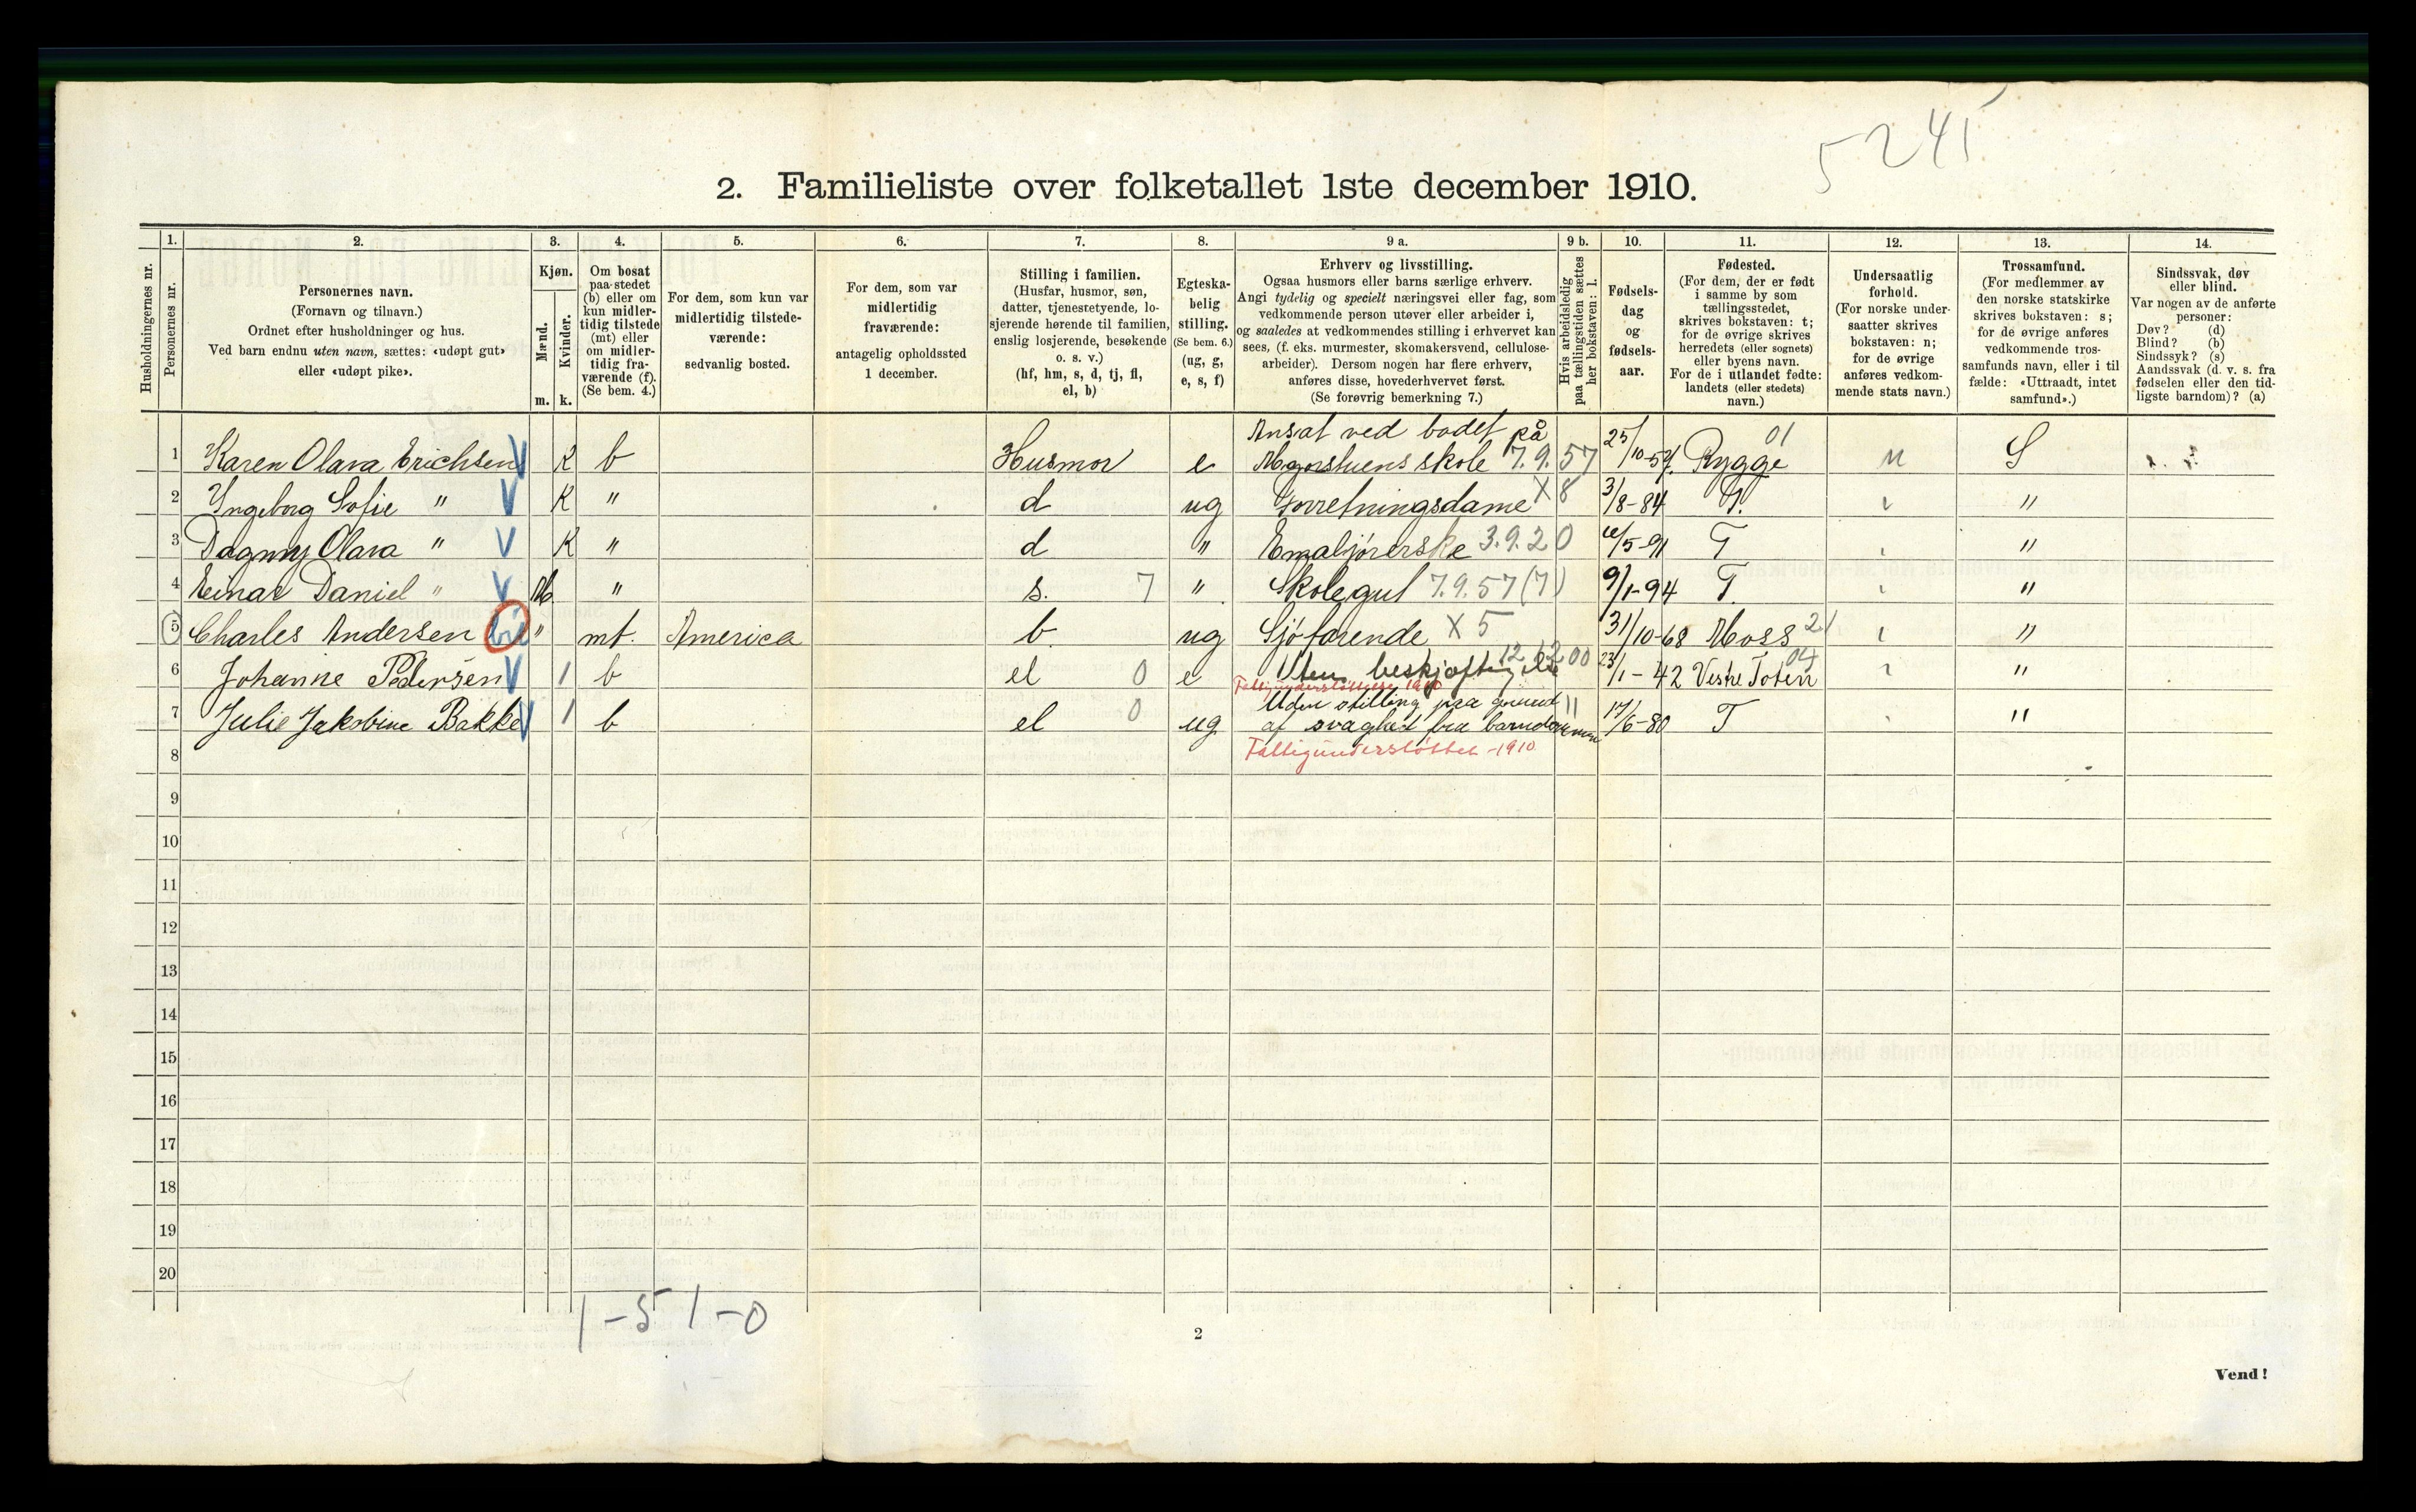 5245
2. Familieliste over folketallet 1ste december 1910.
Husholdningernes nr.
1. Personernes nr.
2. Personernes navn.
(Fornavn og tilnavn.)
Ordnet efter husholdninger og hus.
Ved barn endnu uten navn, sættes: «udøpt gut»
eller «udøpt pike».
3. Kjøn.
Mænd. m.
Kvinder. k.
4. Om bosat
paa stedet
(b) eller om
kun midler-
tidig tilstede
(mt) eller
om midler-
tidig fra-
værende (f).
(Se bem. 4.)
5. For dem, som kun var
midlertidig tilstede-
værende:
sedvanlig bosted.
6. For dem, som var
midlertidig
fraværende:
antagelig opholdssted
1 december.
7. Stilling i familien.
(Husfar, husmor, søn,
datter, tjenestetyende, lo-
sjerende hørende til familien,
enslig losjerende, besøkende
o. s. v.)
(hf, hm, s, d, tj, fl,
el, b)
8. Egteska-
belig
stilling.
(Se bem. 6.)
(ug, g,
e, s, f)
9 a. Erhverv og livsstilling.
Ogsaa husmors eller barns særlige erhverv.
Angi tydelig og specielt næringsvei eller fag, som
vedkommende person utøver eller arbeider i,
og saaledes at vedkommendes stilling i erhvervet kan
sees, (f. eks. murmester, skomakersvend, cellulose-
arbeider). Dersom nogen har flere erhverv,
anføres disse, hovederhvervet først.
(Se forøvrig bemerkning 7.)
9 b. Hvis arbeidsledig
paa tællingstiden sættes
her bokstaven: l.
10. Fødsels-
dag
og
fødsels-
aar.
11. Fødested.
(For dem, der er født
i samme by som
tællingsstedet,
skrives bokstaven: t;
for de øvrige skrives
herredets (eller sognets)
eller byens navn.
For de i utlandet fødte:
landets (eller stedets)
navn.)
12. Undersaatlig
forhold.
(For norske under-
saatter skrives
bokstaven: n;
for de øvrige
anføres vedkom-
mende stats navn.)
13. Trossamfund.
(For medlemmer av
den norske statskirke
skrives bokstaven: s;
for de øvrige anføres
vedkommende tros-
samfunds navn, eller i til
fælde: «Uttraadt, intet
samfund».)
14. Sindssvak, døv
eller blind.
Var nogen av de anførte
personer:
Døv? (d)
Blind? (b)
Sindssyk? (s)
Aandssvak (d. v. s. fra
fødselen eller den tid-
ligste barndom)? (a)
Ansat ved badet på 01
1 Karen Olava Erichsen V K b Husmor e skole 7.9.57 25/10-57 Rygge n S
2 Ingeborg Sofie " V K " d ug Forretningsdame X 8 3/8-84 T. "
3 Dagny Olava " V K " d " Emaljørerske 3.9.20 /5-91 T "
4 Einar Daniel " V M. " s. 7 " Skolegut 7.9.57 (7) 9/1-94 T. "
5 Charles Andersen " mt. America b. ug Sjøfarende X 5 31/10-68 Moss 21 "
6 Johanne Pedersen V 1 b el 0 e Uten beskjæftigelse 23/1-42 Vestre Toten 04 "
Fattigunderstøttelse 1910
Uden stilling paa grund "
7 Julie Jakobine Bakke V 1 b el 0 ug af svaghed fra barndommen 17/6-80 T "
Fattigunderstøttet - 1910
8
9
10
11
12
13
14
15
16
17
18
19
20
1-5 1-0
2
Vend!